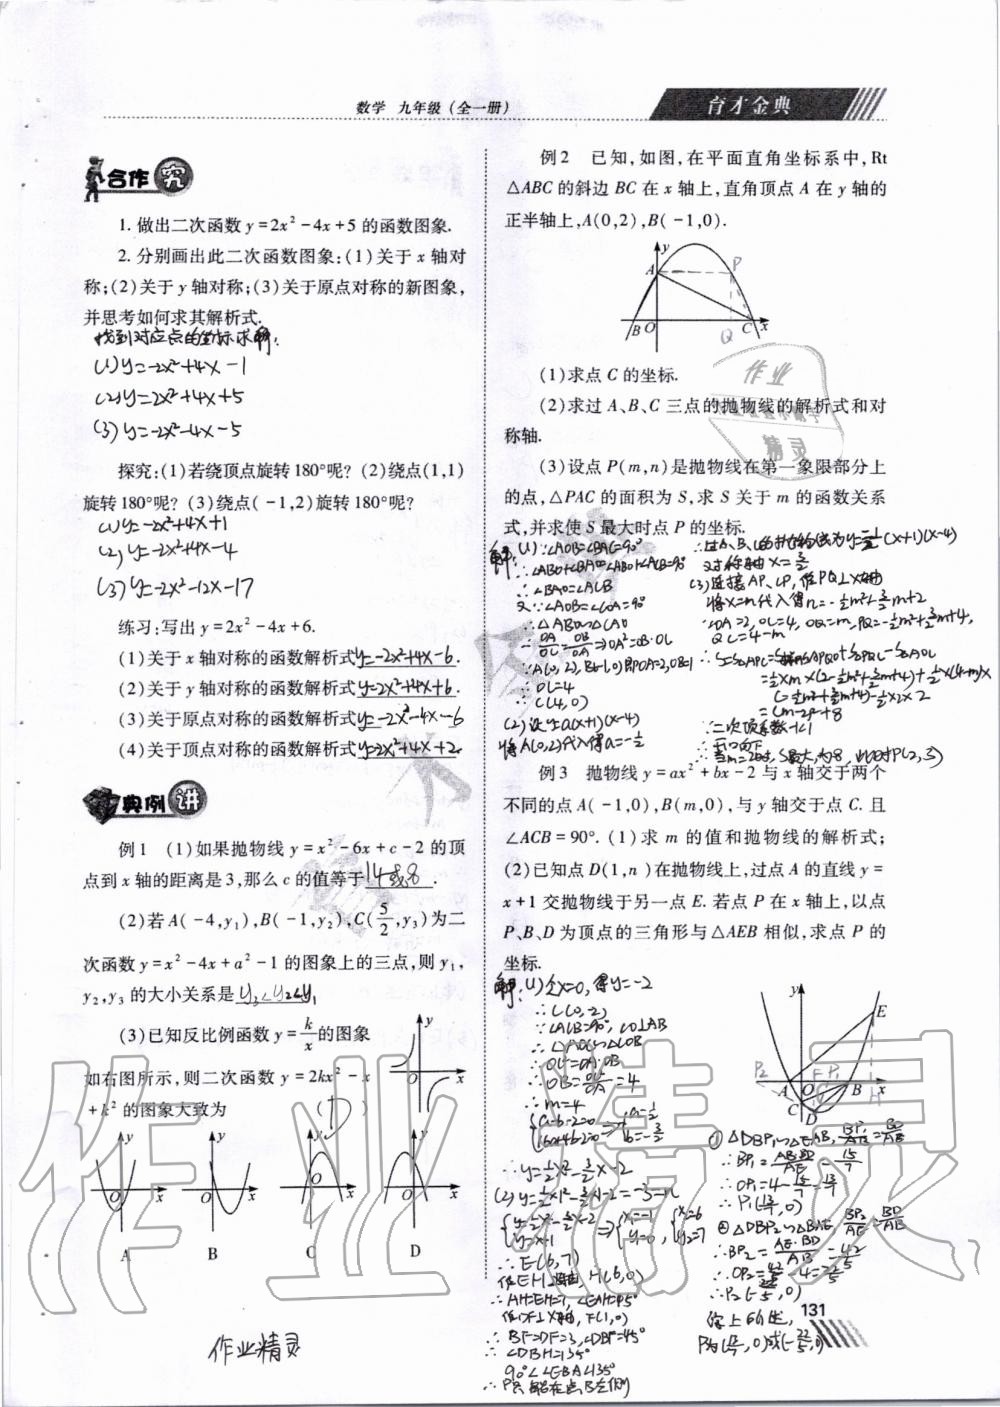 数学 九年级(全一册)
育才金典
合作 究
1. 做出二次函数 y=2x²-4x+5 的函数图象.
2. 分别画出此二次函数图象:(1)关于 x 轴对
称;(2)关于 y 轴对称;(3)关于原点对称的新图象,
并思考如何求其解析式.
找到对应点的坐标求解:
(1)y=-2x²+4x-1
(2)y=2x²+4x+5
(3)y=-2x²-4x-5
探究:(1)若绕顶点旋转 180°呢? (2)绕点(1,1)
旋转 180°呢? (3)绕点(-1,2)旋转 180°呢?
(1)y=-2x²+4x+1
(2)y=-2x²+4x-4
(3)y=-2x²-12x-17
练习:写出 y=2x²-4x+6.
(1)关于 x 轴对称的函数解析式y=-2x²+4x-6.
(2)关于 y 轴对称的函数解析式y=2x²+4x+6.
(3)关于原点对称的函数解析式y=-2x²-4x-6
(4)关于顶点对称的函数解析式y=-2x²+4x+2.
典例 讲
例1 (1)如果抛物线 y=x²-6x+c-2 的顶
点到 x 轴的距离是 3,那么 c 的值等于14或8.
(2)若 A(-4,y₁),B(-1,y₂),C(5/2,y₃)为二
次函数 y=x²-4x+a²-1 的图象上的三点,则 y₁,
y₂,y₃ 的大小关系是 y₃<y₂<y₁
(3)已知反比例函数 y=k/x 的图象
如右图所示,则二次函数 y=2kx²-x
+k² 的图象大致为 ( D )
y
O x
y O x A
y O x B
y O x C
y O x D
作业精灵
例2 已知,如图,在平面直角坐标系中,Rt
△ABC 的斜边 BC 在 x 轴上,直角顶点 A 在 y 轴的
正半轴上,A(0,2),B(-1,0).
y
A P
B O Q C x
(1)求点 C 的坐标.
(2)求过 A、B、C 三点的抛物线的解析式和对
称轴.
(3)设点 P(m,n)是抛物线在第一象限部分上
的点,△PAC 的面积为 S,求 S 关于 m 的函数关系
式,并求使 S 最大时点 P 的坐标.
解:(1)∵∠AOB=∠BAC=90°
∴∠ABO+∠BAO=∠ABO+∠ACB=90°
∴∠BAO=∠ACB
又∵∠AOB=∠COA=90°
∴△ABO∽△CAO
∴OA/OC=OB/OA⇒OA²=OB·OC
∵A(0,2),B(-1,0)即OA=2,OB=1
∴OC=4
∴C(4,0)
(2)设y=a(x+1)(x-4)
将A(0,2)代入得a=-1/2
∴过A、B、C的抛物线为y=-1/2(x+1)(x-4)
对称轴x=3/2
(3)连接AP、CP,作PQ⊥x轴
将x=m代入得n=-1/2m²+3/2m+2
∴二次项系数-1<1
∴开口向下
当m=2时,S最大,为8,此时P(2,3)
例3 抛物线 y=ax²+bx-2 与 x 轴交于两个
不同的点 A(-1,0),B(m,0),与 y 轴交于点 C. 且
∠ACB=90°. (1)求 m 的值和抛物线的解析式;
(2)已知点 D(1,n)在抛物线上,过点 A 的直线 y=
x+1 交抛物线于另一点 E. 若点 P 在 x 轴上,以点
P、B、D 为顶点的三角形与△AEB 相似,求点 P 的
坐标.
解:(1)令x=0,得y=-2
∴C(0,-2)
∵∠ACB=90°,CO⊥AB
∴△AOC∽△COB
∴OC²=OA·OB
∴OB=OC²/OA=4
∴m=4
∴y=1/2x²-3/2x-2
∴E(6,7)
作EH⊥x轴,H(6,0)
∴AH=EH=7,∠EAH=45°
作DF⊥x轴,F(1,0)
∴BF=DF=3,∠DBF=45°
∴∠DBH=135°
90°<∠EBA<135°
∴P只能在点B左侧
y
E
P₂ A O F P₁ B H x
C D
①△DBP₁∽△EAB, BP₁/AB=BD/AE
∴BP₁=AB·BD/AE=15/7
∴OP₁=4-15/7=13/7
∴P₁(13/7,0)
②△DBP₂∽△BAE BP₂/AE=BD/AB
∴BP₂=AE·BD/AB=42/5
∴OP₂=42/5-4=22/5
∴P₂(-22/5,0)
综上所述,
P为(13/7,0)或(-22/5,0)
131
作业精灵